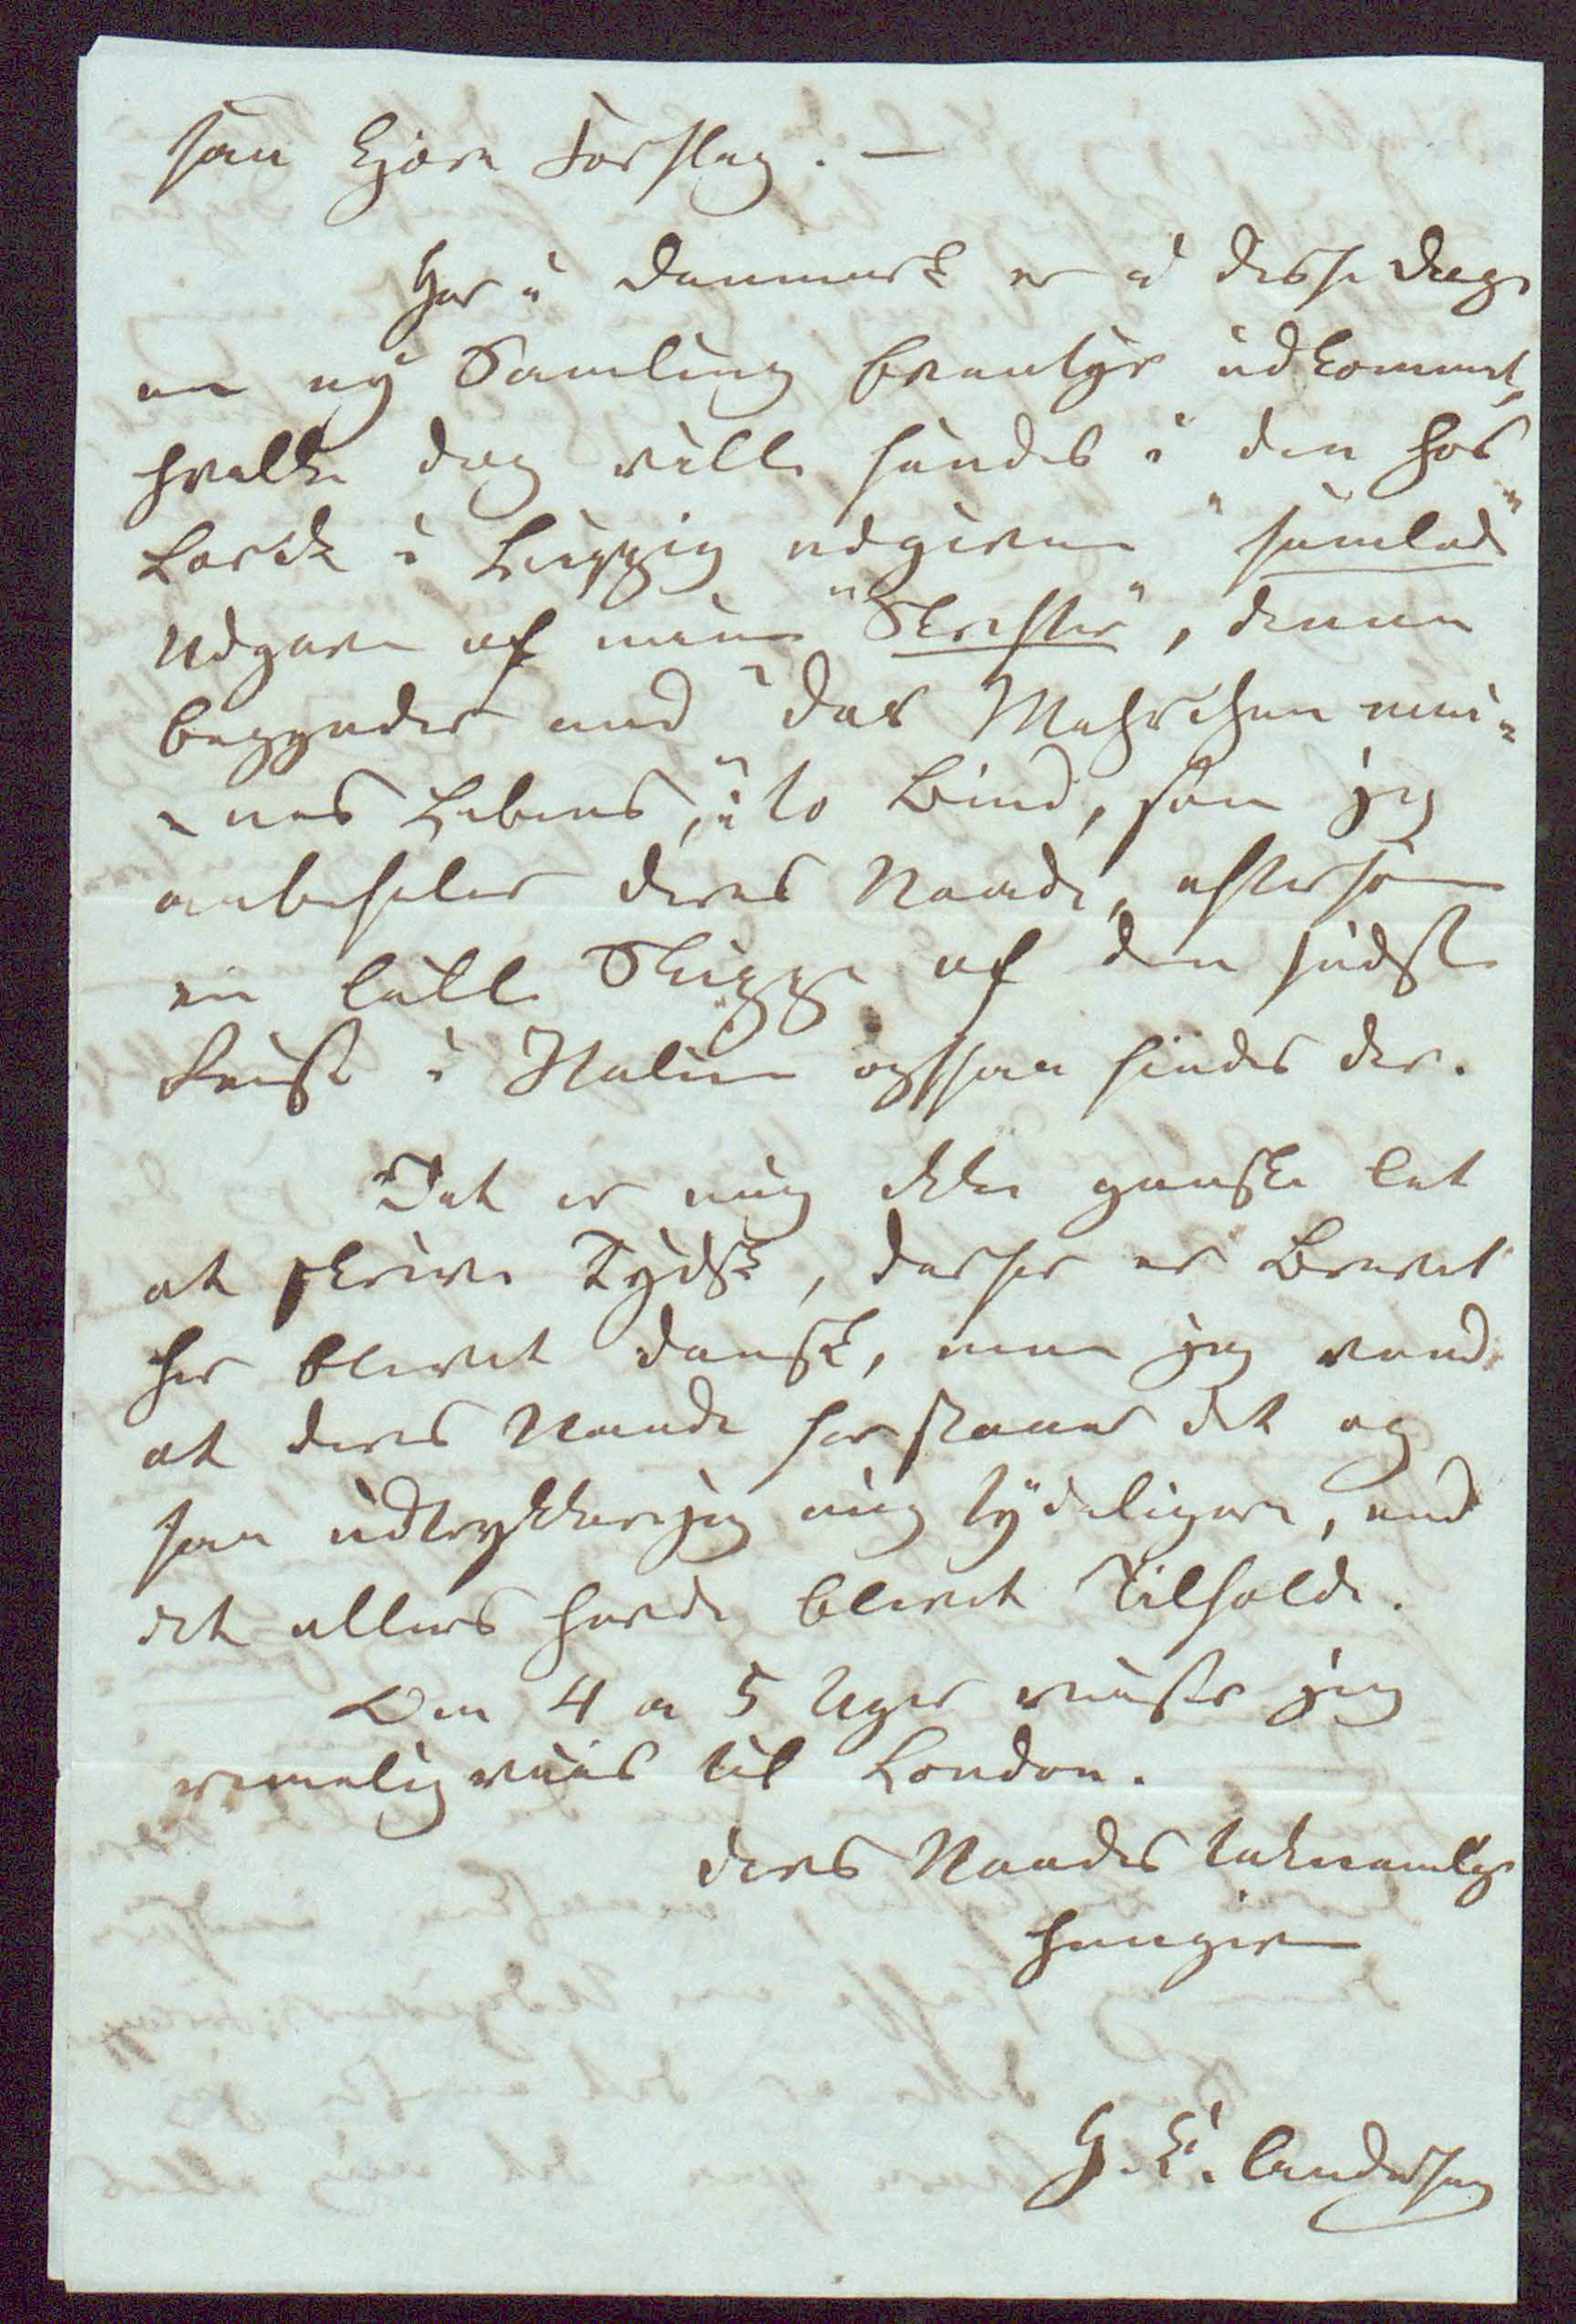 saa kjære Forslag. —
Her i Danmark er i disse Dage
en ny Samling Eventyr udkommet,
hvilke dog ville findes i den hos
Lorck i Leipzig udgivne "samlede"
Udgave af mine "Skrifter", denne
begynder med "das Mährchen mei-
-nes Lebens", i to Bind, som jeg
anbefaler Deres Naade, eftersom
en lille Skizze af den sidste
Reise i Italien ogsaa findes der.
Det er mig ikke ganske let
at skrive Tydsk, derfor er Brevet
her blevet dansk, men jeg veed
at Deres Naade forstaaer det og
saa udtrykker jeg mig tydeligere, end
det ellers havde blevet Tilfældet.
Om 4 a 5 Uger reiser jeg
rimeligviis til London.
Deres Naades taknemlige
hengivne
H. C. Andersen